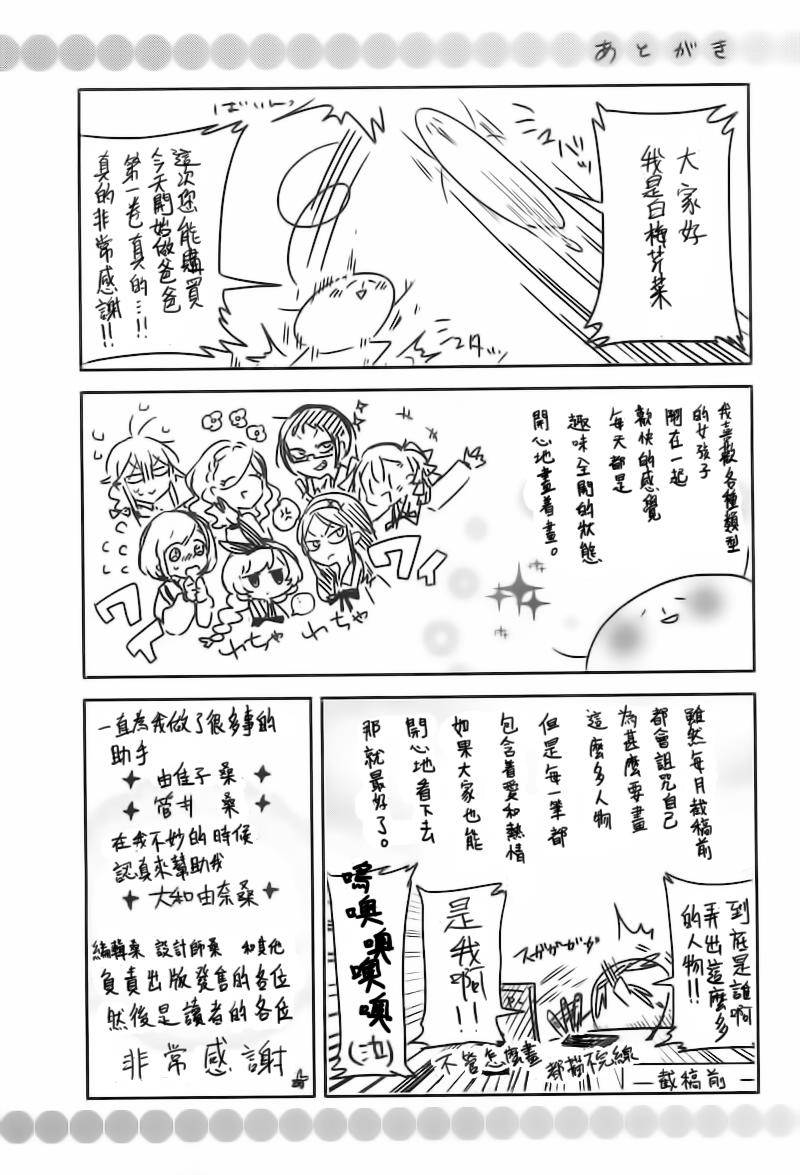 あとがき
大家好
我是白梅芹菜
ばいんっ
這次您能購買
今天開始做爸爸
第一卷真的…!!
真的非常感謝!!
我喜歡各種類型
的女孩子
鬧在一起
歡快的感覺
每天都是
趣味全開的狀態
開心地畫着畫。
ワイ
ワイ
わちゃ
わちゃ
雖然每月截稿前
都會詛咒自己
為甚麼要畫
這麼多人物
但是每一筆都
包含着愛和熱情
如果大家也能
開心地看下去
那就最好了。
到底是誰啊
弄出這麼多
的人物!!
スガガガガガ
是我啊!!
嗚噢噢噢噢(泣)
不管怎麼畫
都描不完線
—截稿前—
一直為我做了很多事的
助手
✦ 由佳子 桑 ✦
✦ 管井 桑 ✦
在我不妙的時候
認真來幫助我
✦ 大和由奈桑 ✦
編輯桑 設計師桑 和其他
負責出版發售的各位
然後是讀者的各位
非常感謝